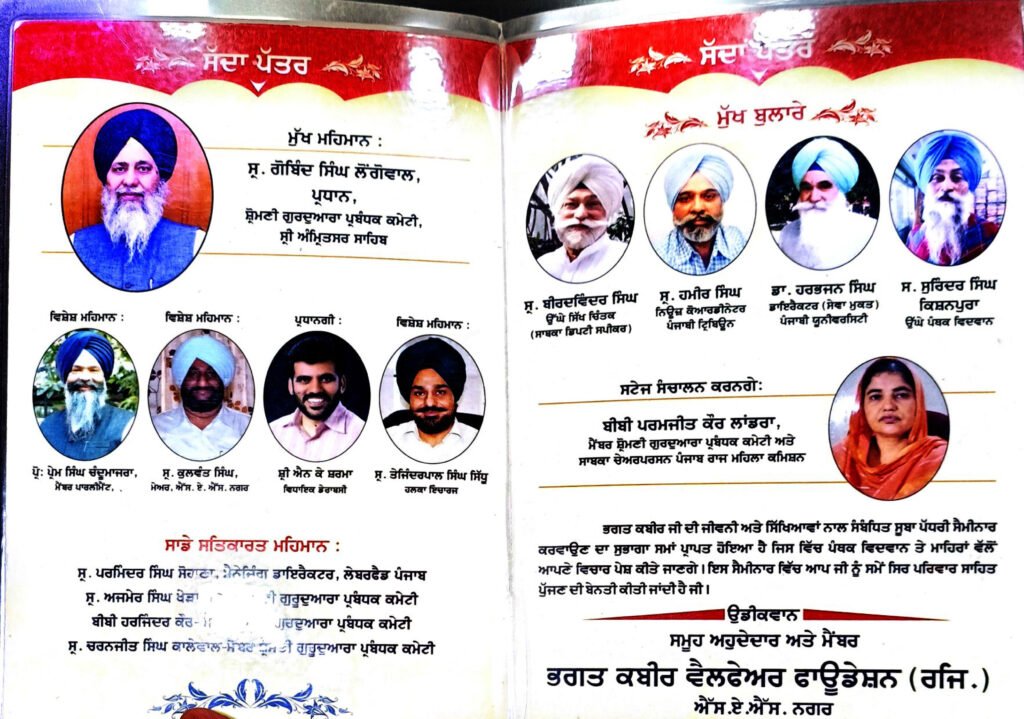 ਸੱਦਾ ਪੱਤਰ
ਮੁੱਖ ਮਹਿਮਾਨ :
ਸ੍ਰ. ਗੋਬਿੰਦ ਸਿੰਘ ਲੌਂਗੋਵਾਲ,
ਪ੍ਰਧਾਨ,
ਸ਼੍ਰੋਮਣੀ ਗੁਰਦੁਆਰਾ ਪ੍ਰਬੰਧਕ ਕਮੇਟੀ,
ਸ੍ਰੀ ਅੰਮ੍ਰਿਤਸਰ ਸਾਹਿਬ
ਵਿਸ਼ੇਸ਼ ਮਹਿਮਾਨ :
ਪ੍ਰੋ: ਪ੍ਰੇਮ ਸਿੰਘ ਚੰਦੂਮਾਜਰਾ,
ਮੈਂਬਰ ਪਾਰਲੀਮੈਂਟ,
ਵਿਸ਼ੇਸ਼ ਮਹਿਮਾਨ :
ਸ੍ਰ. ਕੁਲਵੰਤ ਸਿੰਘ,
ਮੇਅਰ, ਐੱਸ. ਏ. ਐੱਸ. ਨਗਰ
ਪ੍ਰਧਾਨਗੀ :
ਸ਼੍ਰੀ ਐਨ ਕੇ ਸ਼ਰਮਾ
ਵਿਧਾਇਕ ਡੇਰਾਬਸੀ
ਵਿਸ਼ੇਸ਼ ਮਹਿਮਾਨ :
ਸ੍ਰ. ਤੇਜਿੰਦਰਪਾਲ ਸਿੰਘ ਸਿੱਧੂ
ਹਲਕਾ ਇਚਾਰਜ
ਸਾਡੇ ਸਤਿਕਾਰਤ ਮਹਿਮਾਨ :
ਸ੍ਰ. ਪਰਮਿੰਦਰ ਸਿੰਘ ਸੋਹਾਣਾ, ਮੈਨੇਜਿੰਗ ਡਾਇਰੈਕਟਰ, ਲੇਬਰਫੈਡ ਪੰਜਾਬ
ਸ੍ਰ. ਅਜਮੇਰ ਸਿੰਘ ਖੇੜਾ ਗੁਰੂਦੁਆਰਾ ਪ੍ਰਬੰਧਕ ਕਮੇਟੀ
ਬੀਬੀ ਹਰਜਿੰਦਰ ਕੌਰ- ਗੁਰਦੁਆਰਾ ਪ੍ਰਬੰਧਕ ਕਮੇਟੀ
ਸ੍ਰ. ਚਰਨਜੀਤ ਸਿੰਘ ਕਾਲੇਵਾਲ-ਮੈਂਬਰ ਗੁਰੂਦੁਆਰਾ ਪ੍ਰਬੰਧਕ ਕਮੇਟੀ
ਸੱਦਾ ਪੱਤਰ
ਮੁੱਖ ਬੁਲਾਰੇ
ਸ੍ਰ. ਬੀਰਦਵਿੰਦਰ ਸਿੰਘ
ਉੱਘੇ ਸਿੱਖ ਚਿੰਤਕ
(ਸਾਬਕਾ ਡਿਪਟੀ ਸਪੀਕਰ)
ਸ੍ਰ. ਹਮੀਰ ਸਿੰਘ
ਨਿਊਜ਼ ਕੋਆਰਡੀਨੇਟਰ
ਪੰਜਾਬੀ ਟ੍ਰਿਬਿਊਨ
ਡਾ. ਹਰਭਜਨ ਸਿੰਘ
ਡਾਇਰੈਕਟਰ (ਸੇਵਾ ਮੁਕਤ)
ਪੰਜਾਬੀ ਯੂਨੀਵਰਸਿਟੀ
ਸ. ਸੁਰਿੰਦਰ ਸਿੰਘ
ਕਿਸ਼ਨਪੁਰਾ
ਉੱਘੇ ਪੰਥਕ ਵਿਦਵਾਨ
ਸਟੇਜ ਸੰਚਾਲਨ ਕਰਨਗੇ:
ਬੀਬੀ ਪਰਮਜੀਤ ਕੌਰ ਲਾਂਡਰਾ,
ਮੈਂਬਰ ਸ਼੍ਰੋਮਣੀ ਗੁਰਦੁਆਰਾ ਪ੍ਰਬੰਧਕ ਕਮੇਟੀ ਅਤੇ
ਸਾਬਕਾ ਚੇਅਰਪਰਸਨ ਪੰਜਾਬ ਰਾਜ ਮਹਿਲਾ ਕਮਿਸ਼ਨ
ਭਗਤ ਕਬੀਰ ਜੀ ਦੀ ਜੀਵਨੀ ਅਤੇ ਸਿੱਖਿਆਵਾਂ ਨਾਲ ਸੰਬੰਧਿਤ ਸੂਬਾ ਪੱਧਰੀ ਸੈਮੀਨਾਰ
ਕਰਵਾਉਣ ਦਾ ਸੁਭਾਗਾ ਸਮਾਂ ਪ੍ਰਾਪਤ ਹੋਇਆ ਹੈ ਜਿਸ ਵਿੱਚ ਪੰਥਕ ਵਿਦਵਾਨ ਤੇ ਮਾਹਿਰਾਂ ਵੱਲੋਂ
ਆਪਣੇ ਵਿਚਾਰ ਪੇਸ਼ ਕੀਤੇ ਜਾਣਗੇ। ਇਸ ਸੈਮੀਨਾਰ ਵਿੱਚ ਆਪ ਜੀ ਨੂੰ ਸਮੇਂ ਸਿਰ ਪਰਿਵਾਰ ਸਾਹਿਤ
ਪੁੱਜਣ ਦੀ ਬੇਨਤੀ ਕੀਤੀ ਜਾਂਦੀ ਹੈ ਜੀ।
ਉਡੀਕਵਾਨ
ਸਮੂਹ ਅਹੁਦੇਦਾਰ ਅਤੇ ਮੈਂਬਰ
ਭਗਤ ਕਬੀਰ ਵੈਲਫੇਅਰ ਫਾਊਡੇਸ਼ਨ (ਰਜਿ.)
ਐੱਸ.ਏ.ਐੱਸ. ਨਗਰ